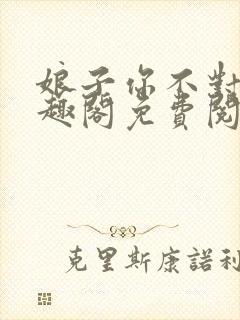 娘子你不對
趣閣免費閱
克里斯康諾利